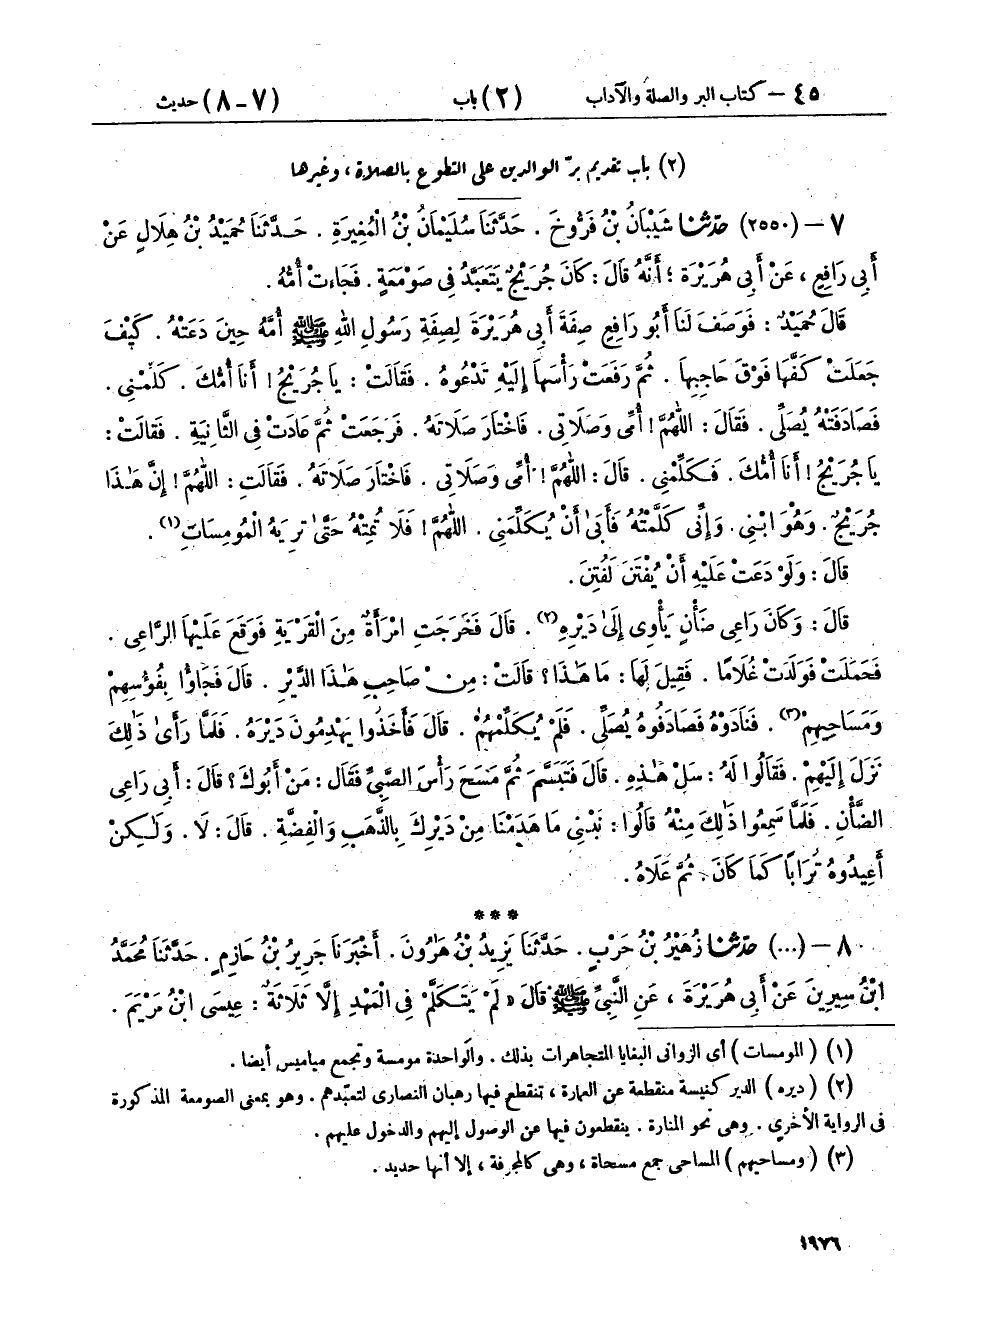 ٤٥ – كتاب البر والصلة والآداب (٢) باب (٧-٨) حديث
(٢) باب تقديم برّ الوالدين على التطوع بالصلاة ، وغيرها
٧ – (٢٥٥٠) حدّثنا شَيْبَانُ بْنُ فَرُّوخَ . حَدَّثَنَا سُلَيْمَانُ بْنُ الْمُغِيرَةِ . حَدَّثَنَا حُمَيْدُ بْنُ هِلَالٍ عَنْ
أَبِي رَافِعٍ ، عَنْ أَبِي هُرَيْرَةَ ؛ أَنَّهُ قَالَ : كَانَ جُرَيْجٌ يَتَعَبَّدُ فِي صَوْمَعَةٍ . فَجَاءَتْ أُمُّهُ .
قَالَ حُمَيْدٌ : فَوَصَفَ لَنَا أَبُو رَافِعٍ صِفَةَ أَبِي هُرَيْرَةَ لِصِفَةِ رَسُولِ اللهِ ﷺ أُمَّهُ حِينَ دَعَتْهُ . كَيْفَ
جَعَلَتْ كَفَّهَا فَوْقَ حَاجِبِهَا . ثُمَّ رَفَعَتْ رَأْسَهَا إِلَيْهِ تَدْعُوهُ . فَقَالَتْ : يَا جُرَيْجُ ! أَنَا أُمُّكَ . كَلِّمْنِي .
فَصَادَفَتْهُ يُصَلِّي . فَقَالَ : اللّٰهُمَّ ! أُمِّي وَصَلَاتِي . فَاخْتَارَ صَلَاتَهُ . فَرَجَعَتْ ثُمَّ عَادَتْ فِي الثَّانِيَةِ . فَقَالَتْ :
يَا جُرَيْجُ ! أَنَا أُمُّكَ . فَكَلِّمْنِي . قَالَ : اللّٰهُمَّ ! أُمِّي وَصَلَاتِي . فَاخْتَارَ صَلَاتَهُ . فَقَالَتِ : اللّٰهُمَّ ! إِنَّ هَٰذَا
جُرَيْجٌ . وَهُوَ ابْنِي . وَإِنِّي كَلَّمْتُهُ فَأَبَىٰ أَنْ يُكَلِّمَنِي . اللّٰهُمَّ ! فَلَا تُمِتْهُ حَتَّىٰ تُرِيَهُ الْمُومِسَاتِ (١) .
قَالَ : وَلَوْ دَعَتْ عَلَيْهِ أَنْ يُفْتَنَ لَفُتِنَ .
قَالَ : وَكَانَ رَاعِي ضَأْنٍ يَأْوِي إِلَىٰ دَيْرِهِ (٢) . قَالَ فَخَرَجَتِ امْرَأَةٌ مِنَ الْقَرْيَةِ فَوَقَعَ عَلَيْهَا الرَّاعِي .
فَحَمَلَتْ فَوَلَدَتْ غُلَامًا . فَقِيلَ لَهَا : مَا هَٰذَا ؟ قَالَتْ : مِنْ صَاحِبِ هَٰذَا الدَّيْرِ . قَالَ فَجَاؤُا بِفُؤُسِهِمْ
وَمَسَاحِيهِمْ (٣) . فَنَادَوْهُ فَصَادَفُوهُ يُصَلِّي . فَلَمْ يُكَلِّمْهُمْ . قَالَ فَأَخَذُوا يَهْدِمُونَ دَيْرَهُ . فَلَمَّا رَأَىٰ ذَٰلِكَ
نَزَلَ إِلَيْهِمْ . فَقَالُوا لَهُ : سَلْ هَٰذِهِ . قَالَ فَتَبَسَّمَ ثُمَّ مَسَحَ رَأْسَ الصَّبِيِّ فَقَالَ : مَنْ أَبُوكَ ؟ قَالَ : أَبِي رَاعِي
الضَّأْنِ . فَلَمَّا سَمِعُوا ذَٰلِكَ مِنْهُ قَالُوا : نَبْنِي مَا هَدَمْنَا مِنْ دَيْرِكَ بِالذَّهَبِ وَالْفِضَّةِ . قَالَ : لَا . وَلَٰكِنْ
أَعِيدُوهُ تُرَابًا كَمَا كَانَ . ثُمَّ عَلَاهُ .
***
٨ – (...) حدّثنا زُهَيْرُ بْنُ حَرْبٍ . حَدَّثَنَا يَزِيدُ بْنُ هَارُونَ . أَخْبَرَنَا جَرِيرُ بْنُ حَازِمٍ . حَدَّثَنَا مُحَمَّدُ
ابْنُ سِيرِينَ عَنْ أَبِي هُرَيْرَةَ ، عَنِ النَّبِيِّ ﷺ قَالَ « لَمْ يَتَكَلَّمْ فِي الْمَهْدِ إِلَّا ثَلَاثَةٌ : عِيسَى ابْنُ مَرْيَمَ .
(١) ( المومسات ) أى الزوانى البغايا المتجاهرات بذلك . والواحدة مومسة وتجمع مياميس أيضا .
(٢) ( ديره ) الدير كنيسة منقطعة عن العمارة ، تنقطع فيها رهبان النصارى لتعبّدهم . وهو بمعنى الصومعة المذكورة
فى الرواية الأخرى . وهى نحو المنارة . ينقطعون فيها عن الوصول إليهم والدخول عليهم .
(٣) ( ومساحيهم ) المساحى جمع مسحاة ، وهى كالمجرفة ، إلا أنها حديد .
١٩٧٦